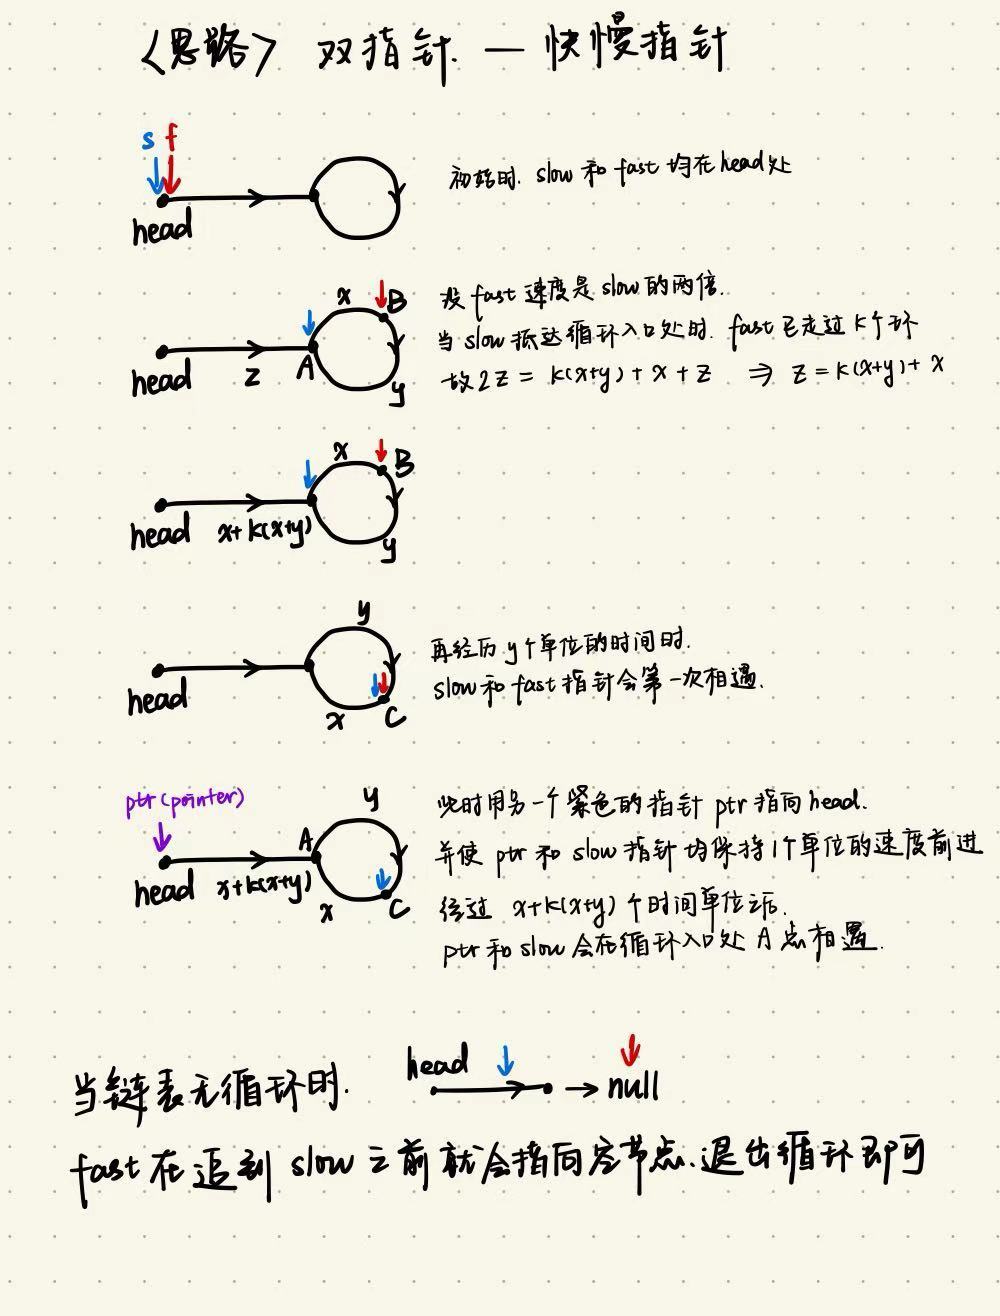 <思路> 双指针. — 快慢指针
s f
head
初始时. slow 和 fast 均在 head 处
x B
head z A y
设 fast 速度是 slow 的两倍.
当 slow 抵达循环入口处时. fast 已走过 k 个环
故 2z = k(x+y) + x + z ⇒ z = k(x+y) + x
x B
head x+k(x+y) y
y
head x C
再经历 y 个单位的时间时.
slow 和 fast 指针会第一次相遇.
ptr(pointer) y
A
head x+k(x+y) x C
此时用另一个紫色的指针 ptr 指向 head.
并使 ptr 和 slow 指针均保持 1 个单位的速度前进
经过 x+k(x+y) 个时间单位后.
ptr 和 slow 会在循环入口处 A 点相遇.
当链表无循环时. head → null
fast 在追到 slow 之前就会指向空节点.退出循环即可